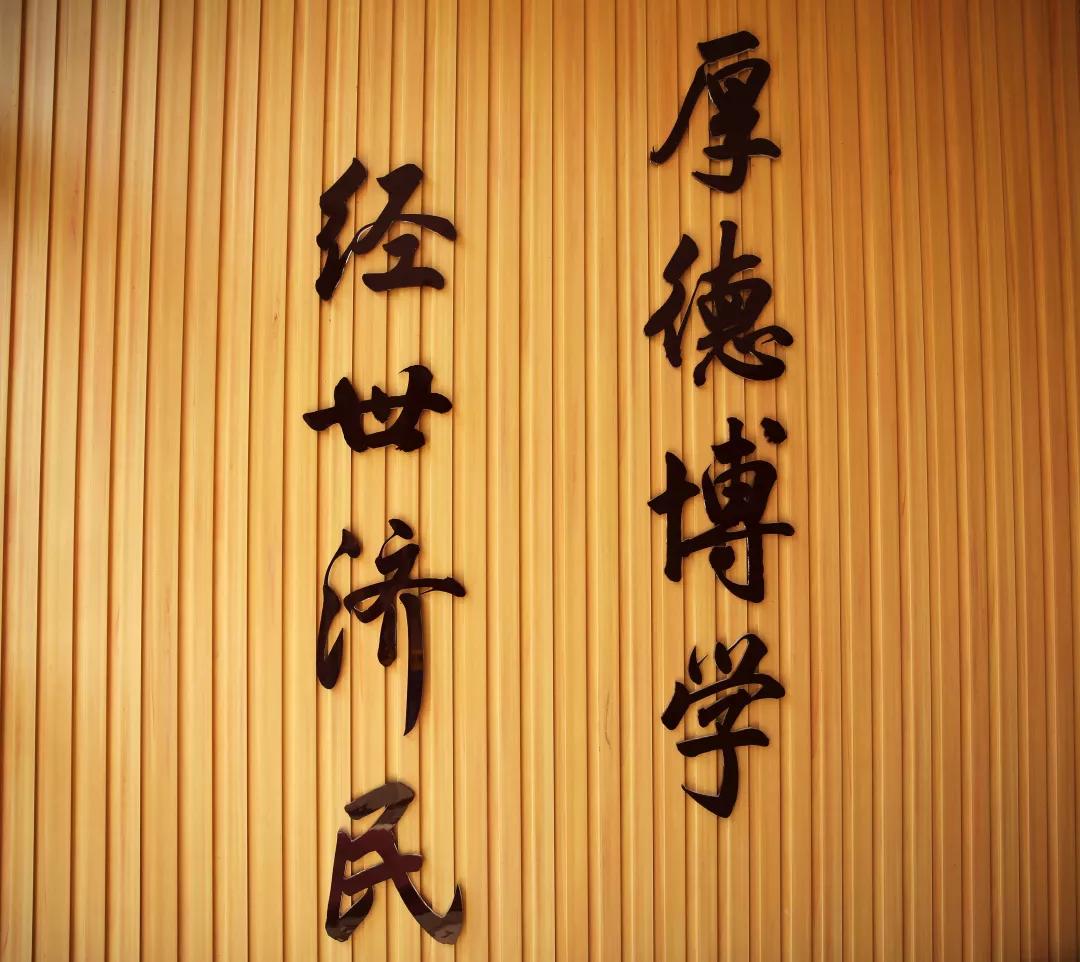 厚德博学
经世济民